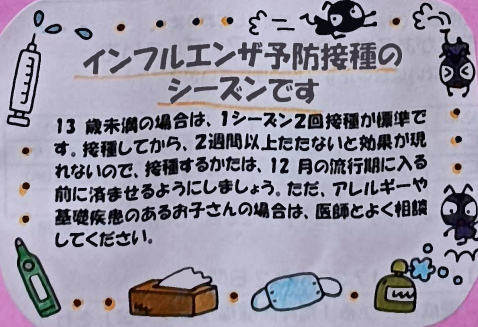 インフルエンザ予防接種の
シーズンです
13 歳未満の場合は、1シーズン2回接種が標準で
す。接種してから、2週間以上たたないと効果が現
れないので、接種するかたは、12 月の流行期に入る
前に済ませるようにしましょう。ただ、アレルギーや
基礎疾患のあるお子さんの場合は、医師とよく相談
してください。